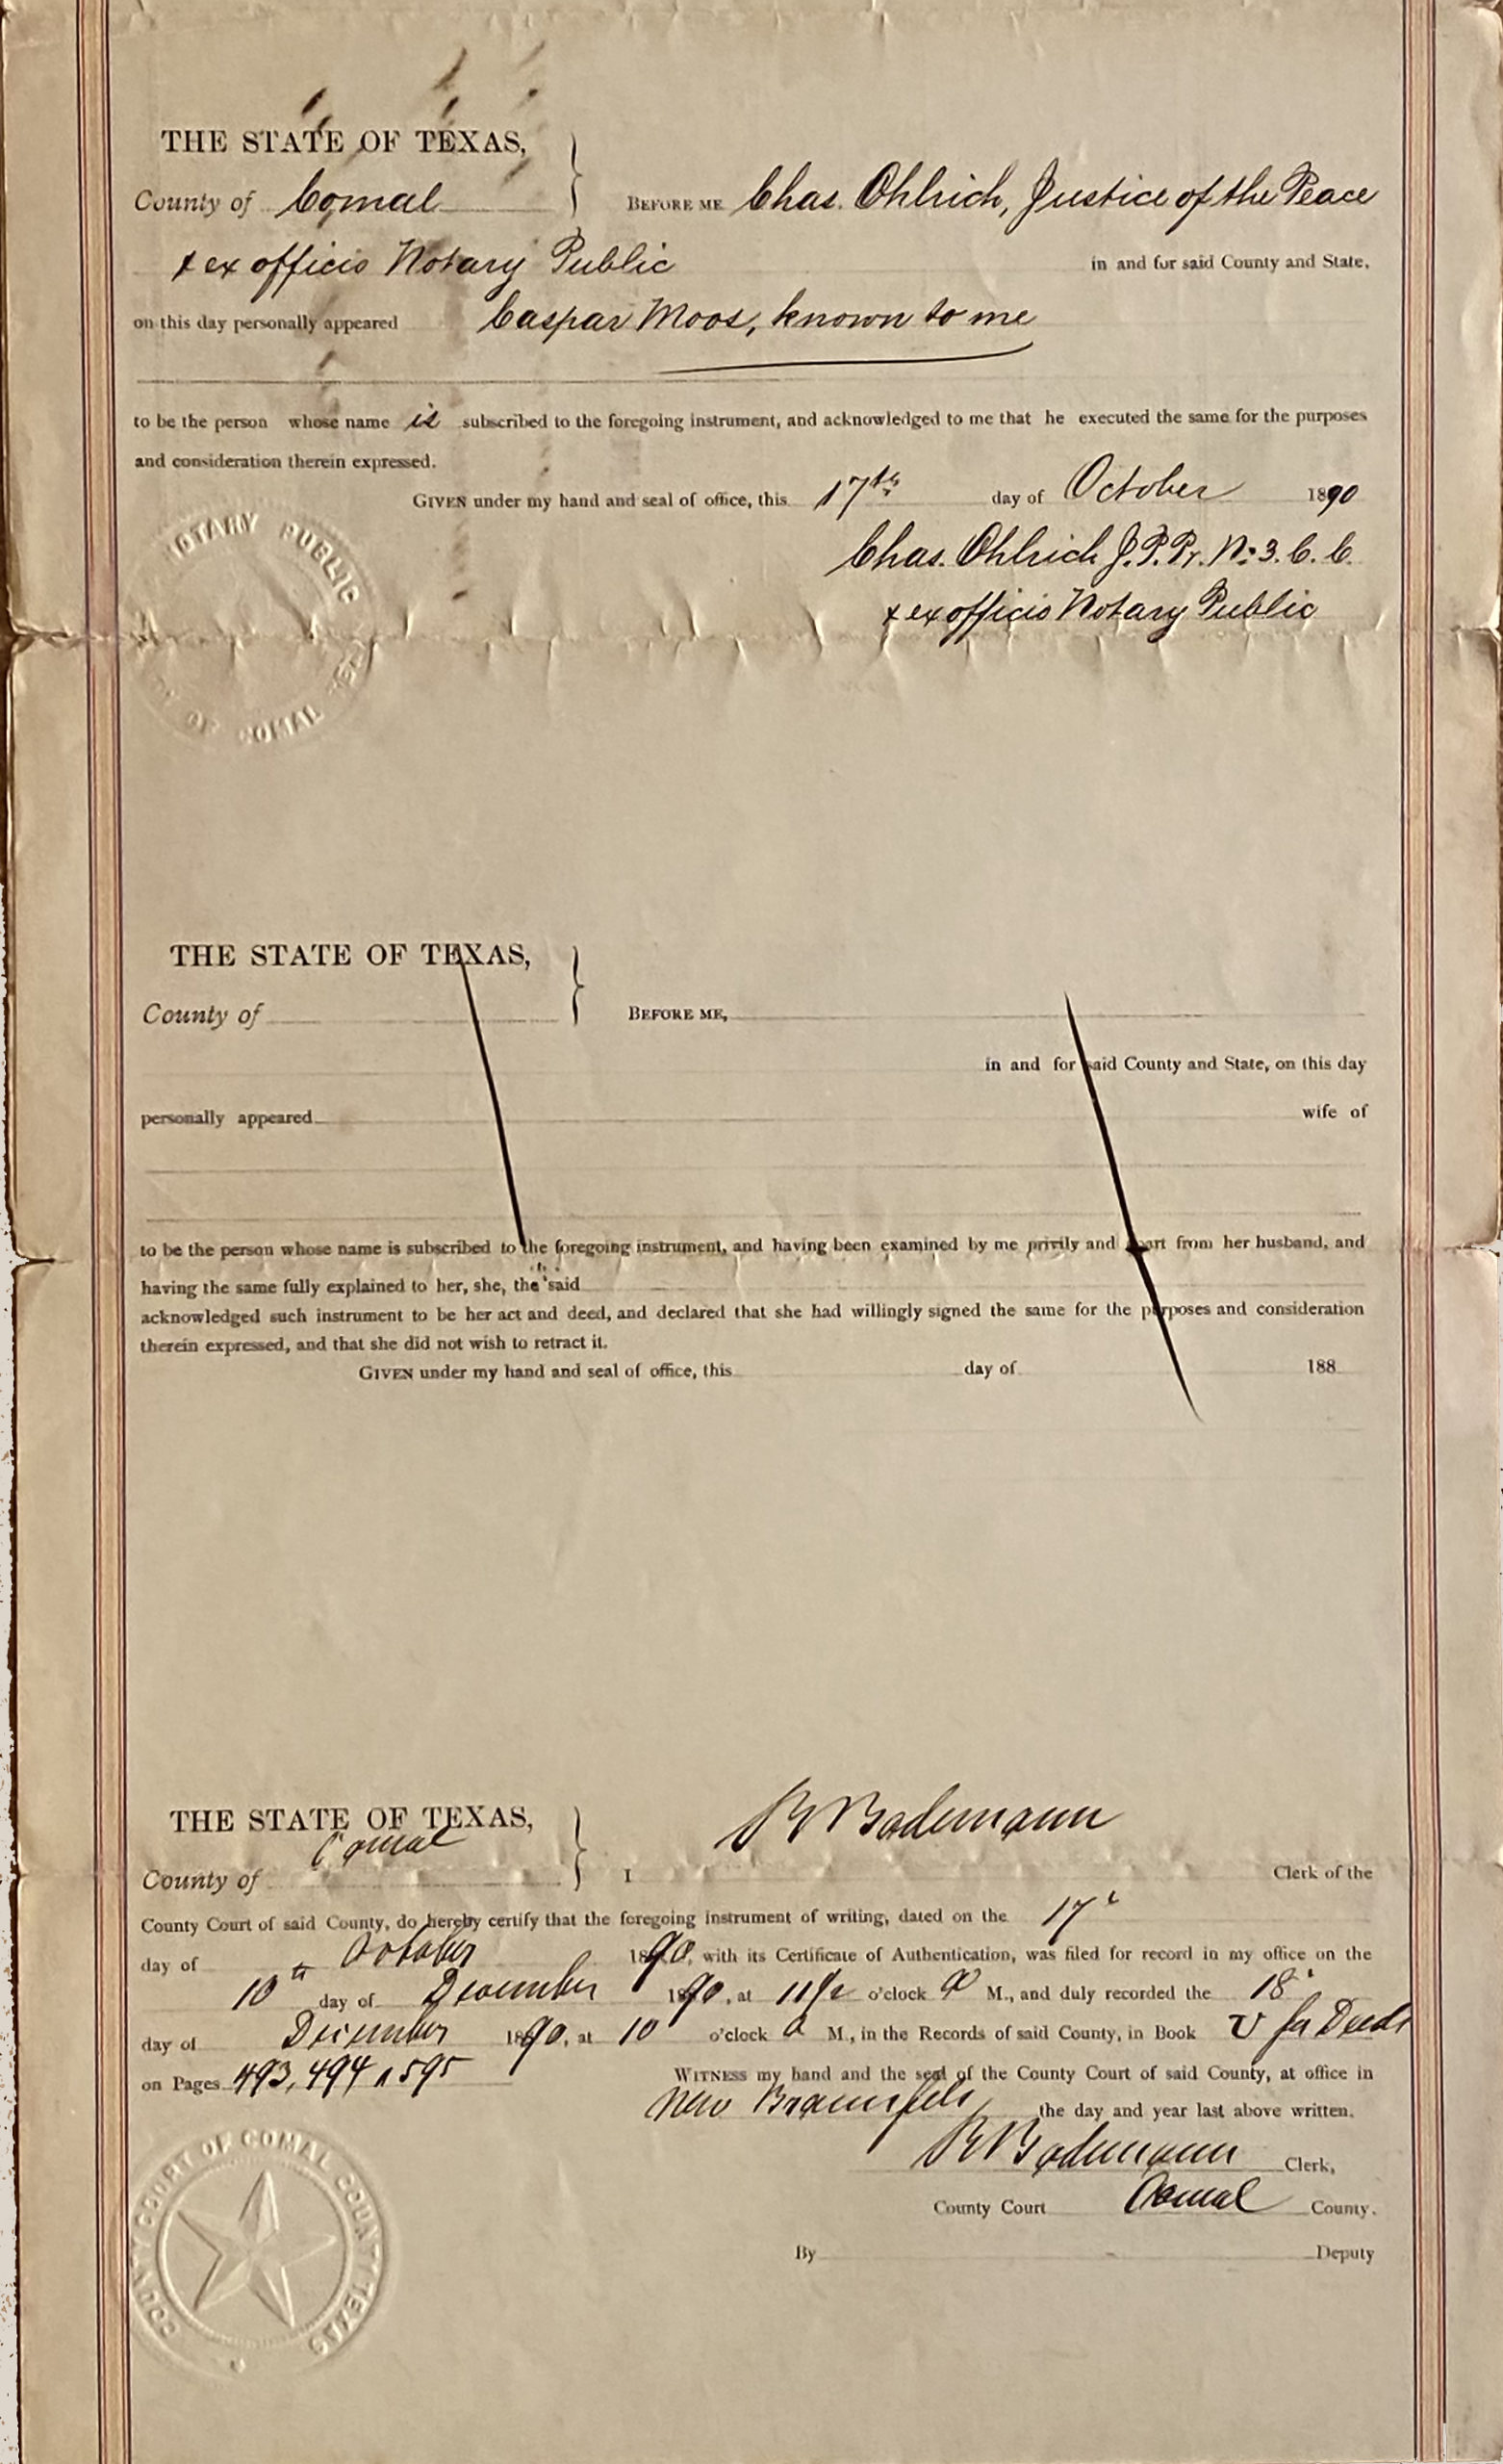 THE STATE OF TEXAS,
County of Comal BEFORE ME Chas. Ohlrich, Justice of the Peace
& ex officio Notary Public in and for said County and State,
on this day personally appeared Caspar Moos, known to me
to be the person whose name is subscribed to the foregoing instrument, and acknowledged to me that he executed the same for the purposes
and consideration therein expressed.
GIVEN under my hand and seal of office, this 17th day of October 1890
Chas. Ohlrich J.P. Pr. No 3. C. C.
& ex officio Notary Public
NOTARY PUBLIC
OF COMAL
THE STATE OF TEXAS,
County of BEFORE ME,
in and for said County and State, on this day
personally appeared wife of
to be the person whose name is subscribed to the foregoing instrument, and having been examined by me privily and apart from her husband, and
having the same fully explained to her, she, the said
acknowledged such instrument to be her act and deed, and declared that she had willingly signed the same for the purposes and consideration
therein expressed, and that she did not wish to retract it.
GIVEN under my hand and seal of office, this day of 188
THE STATE OF TEXAS,
County of Comal I R Bodemann Clerk of the
County Court of said County, do hereby certify that the foregoing instrument of writing, dated on the 17t
day of October 1890, with its Certificate of Authentication, was filed for record in my office on the
10th day of December 1890, at 11 1/2 o'clock A M., and duly recorded the 18t
day of December 1890, at 10 o'clock A M., in the Records of said County, in Book V for Deeds
on Pages 493, 494 & 595 WITNESS my hand and the seal of the County Court of said County, at office in
New Braunfels the day and year last above written.
R Bodemann Clerk,
County Court Comal County.
By Deputy
COUNTY COURT OF COMAL COUNTY TEXAS